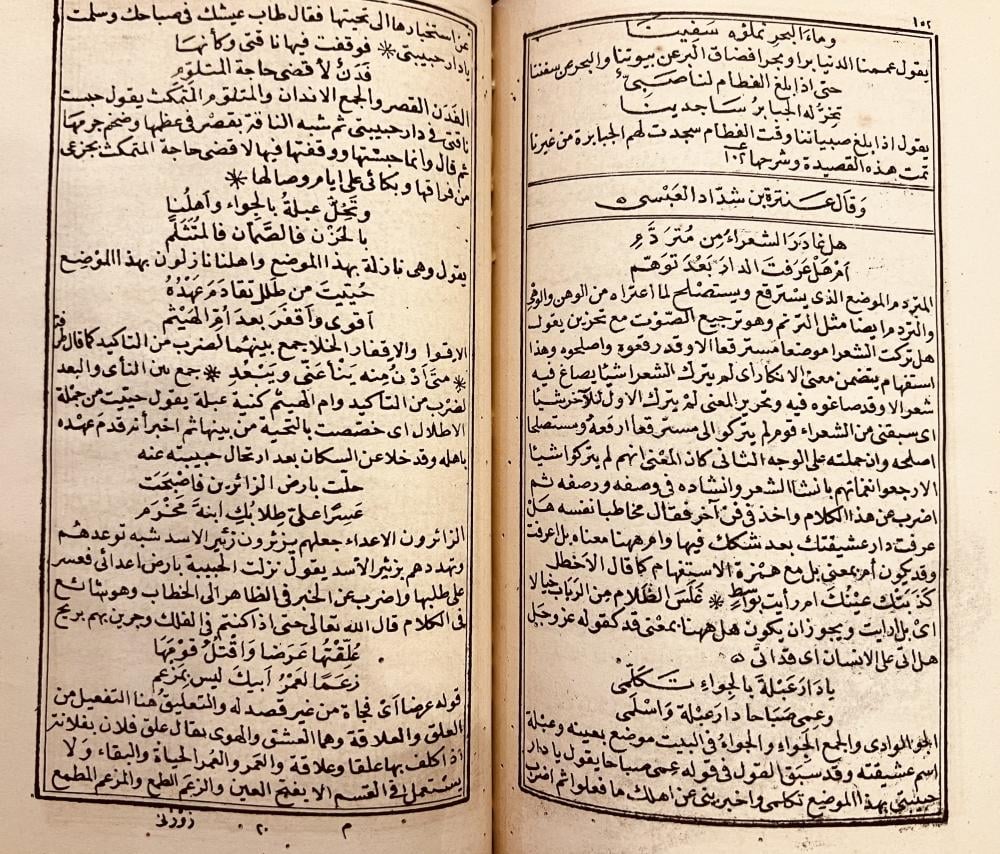 ١٥٢
وماء البحر نملؤه سفينا
يقول عممنا الدنيا برا وبحرا فضاق البر عن بيوتنا والبحر عن سفننا
حتى اذا بلغ الفطام لنا صبي
تخر له الجبابر ساجدينا
يقول اذا بلغ صبياننا وقت الفطام سجدت لهم الجبابرة من غيرنا
تمت هذه القصيدة وشرحها
وقال عنترة بن شداد العبسى
هل غادر الشعراء من متردم
ام هل عرفت الدار بعد توهم
المتردم الموضع الذى يسترقع ويستصلح لما اعتراه من الوهن والوهى
والتردم ايضا مثل الترنم وهو ترجيع الصوت مع تحزين يقول
هل تركت الشعرا موضعا مسترقعا الا وقد رقعوه واصلحوه وهذا
استفهام يتضمن معنى الانكار اى لم يترك الشعرا شيئا يصاغ فيه
شعر الا وقد صاغوه فيه وتحرير المعنى لم يترك الاول للآخر شيئا
اى سبقنى من الشعراء قوم لم يتركوا لى مسترقعا ارقعه ومستصلحا
اصلحه وان حملته على الوجه الثانى كان المعنى انهم لم يتركوا شيئا
الا رجعوا نغماتهم بانشا الشعر وانشاده فى وصفه ورصفه ثم
اضرب عن هذا الكلام واخذ فى فن آخر فقال مخاطبا نفسه هل
عرفت دار عشيقتك بعد شكك فيها وام ههنا معناه بل اعرفت
وقد يكون ام بمعنى بل مع همزة الاستفهام كما قال الاخطل
كذبتك عينك ام رأيت بواسط * غلس الظلام من الرباب خيالا
اى بل ارايت ويجوز ان يكون هل ههنا بمعنى قد كقوله عز وجل
هل اتى على الانسان اى قد اتى
يا دار عبلة بالجواء تكلمى
وعمى صباحا دار عبلة واسلمى
الجو الوادى والجمع الجواء والجواء فى البيت موضع بعينه وعبلة
اسم عشيقته وقد سبق القول فى قوله عمى صباحا يقول يا دار
حبيبتى بهذا الموضع تكلمى واخبرينى عن اهلك ما فعلوا ثم اضرب
عن استخبارها الى تحيتها فقال طاب عيشك فى صباحك وسلمت
يا دار حبيبتى * فوقفت فيها ناقتى وكأنها
فدن لأقضى حاجة المتلوم
الفدن القصر والجمع الافدان والمتلوم المتمكث يقول حبست
ناقتى فى دار حبيبتى ثم شبه الناقة بقصر فى عظمها وضخم جرمها
ثم قال وانما حبستها ووقفتها فيها لاقضى حاجة المتمكث بجزعى
من فراقها وبكائى على ايام وصالها *
وتحل عبلة بالجواء واهلنا
بالحزن فالصمان فالمتثلم
يقول وهى نازلة بهذا الموضع واهلنا نازلون بهذا الموضع
حييت من طلل تقادم عهده
اقوى واقفر بعد ام الهيثم
الاقوا والاقفار الخلا جمع بينهما لضرب من التاكيد كما قال طرفة
* متى ادن منه ينأ عنى ويبعد * جمع بين النأى والبعد
لضرب من التأكيد وام الهيثم كنية عبلة يقول حييت من جملة
الاطلال اى خصصت بالتحية من بينها ثم اخبر انه قدم عهده
باهله وقد خلا عن السكان بعد ارتحال حبيبته عنه
حلت بارض الزائرين فاصبحت
عسرا على طلابك ابنة مخرم
الزائرون الاعداء جعلهم يزئرون زئير الاسد شبه توعدهم
وتهددهم بزئير الأسد يقول نزلت الحبيبة بارض اعدائى فعسر
على طلبها واضرب عن الخبر فى الظاهر الى الخطاب وهو شائع
فى الكلام قال الله تعالى حتى اذا كنتم فى الفلك وجرين بهم بريح
علقتها عرضا واقتل قومها
زعما لعمر ابيك ليس بمزعم
قوله عرضا اى فجاة من غير قصد له والتعليق هنا التفعيل من
العلق والعلاقة وهما العشق والهوى يقال علق فلان بفلانة
اذا كلف بها علقا وعلاقة والعمر والعمر الحياة والبقاء ولا
يستعمل فى القسم الا بفتح العين والزعم الطمع والمزعم المطمع
م ٢٠ زوزنى